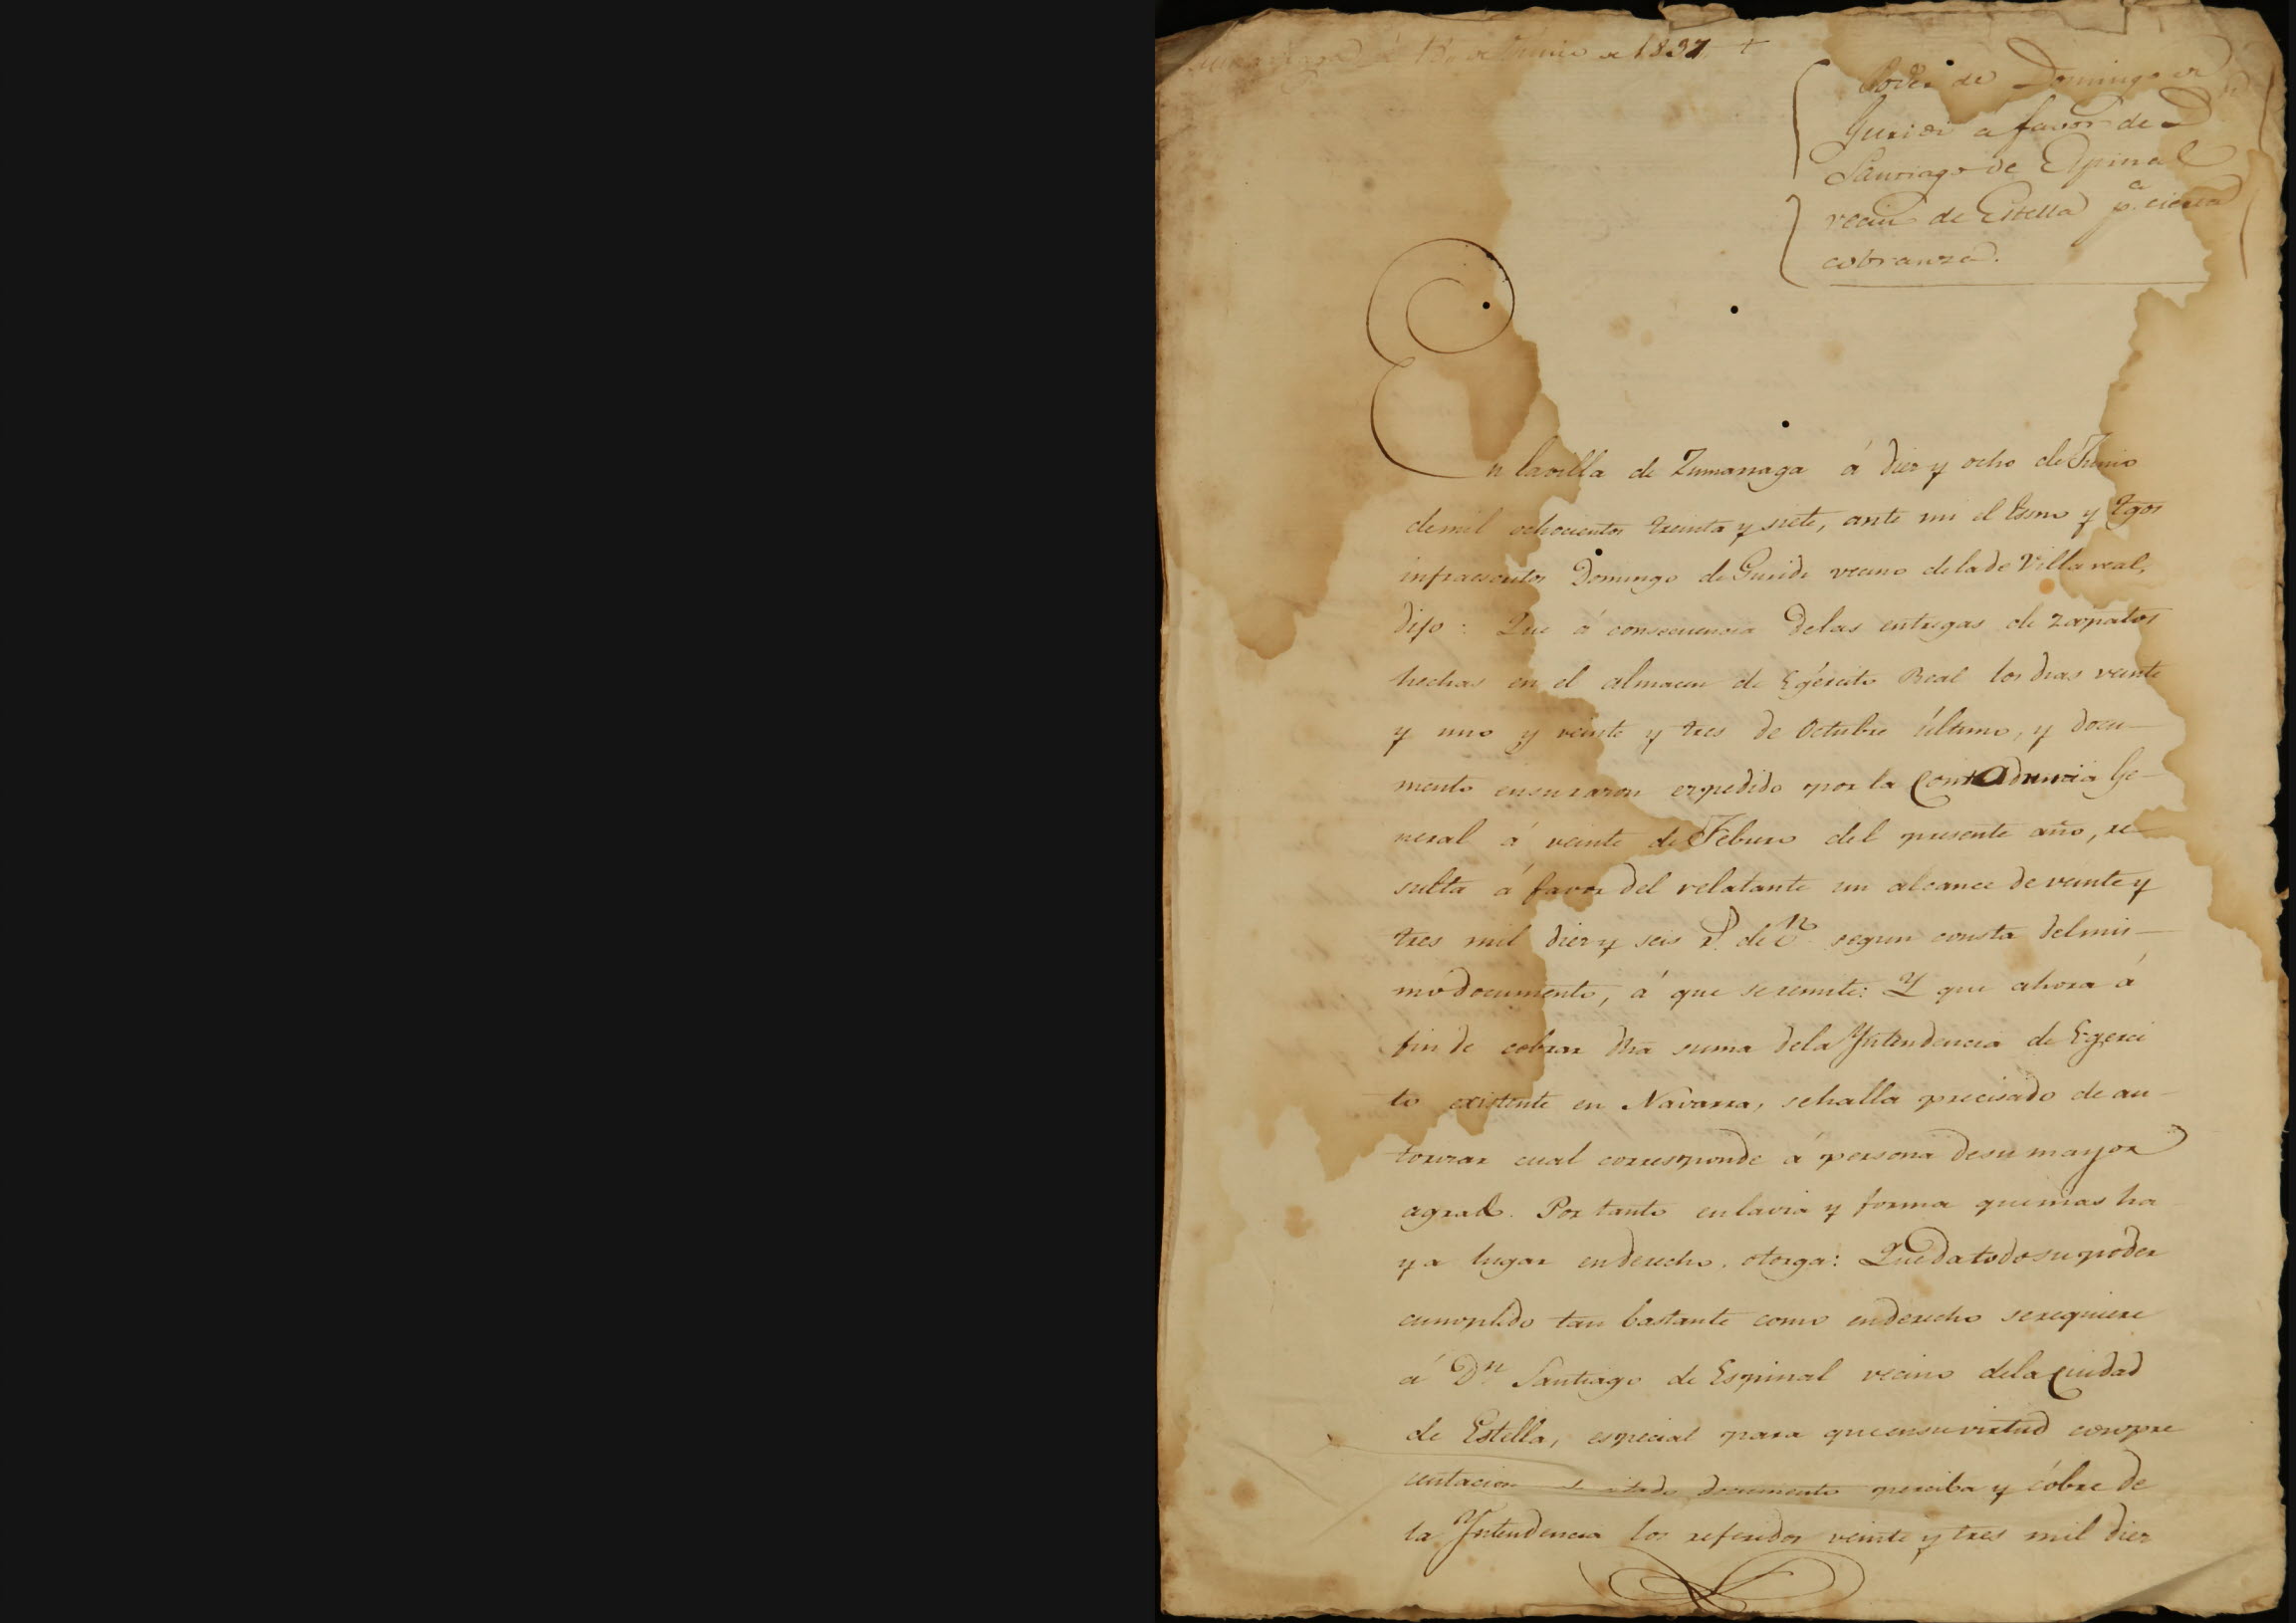 Zumarraga á 18 de Junio de 1837 +
Poder de Domingo de
Guridi a favor de D
Santiago de Espinal
vecino de Estella pª cierta
cobranza.
En lavilla de Zumarraga á diez y ocho de Junio
demil ochocientos treinta y siete, ante mi el Esno y Tgos
infraescritos Domingo de Guridi vecino delade Villareal,
dijo: Que á consecuencia delas entregas de zapatos
hechas en el almacen de Egército Real los dias veinte
y uno y veinte y tres de Octubre último, y docu-
mento ensurazon expedido por la Contaduria Ge-
neral á veinte de Febrero del presente año, re-
sulta á favor del relatante un alcance de veinte y
tres mil diez y seis rs. de vn. segun consta delmis-
mo documento, á que seremite: Y que ahora á
fin de cobrar dha suma dela Yntendencia de Egerci
to existente en Navarra, sehalla precisado de au-
torizar cual corresponde á persona desu mayor
agrado. Por tanto enlavia y forma quemas ha
ya lugar enderecho, otorga: Queda todo su poder
cumplido tan bastante como enderecho serequiere
á Dn Santiago de Espinal vecino dela Ciudad
de Estella, especial para queensuvirtud conpre
sentacion del citado documento perciba y cobre de
la Yntendencia los referidos veinte y tres mil diez